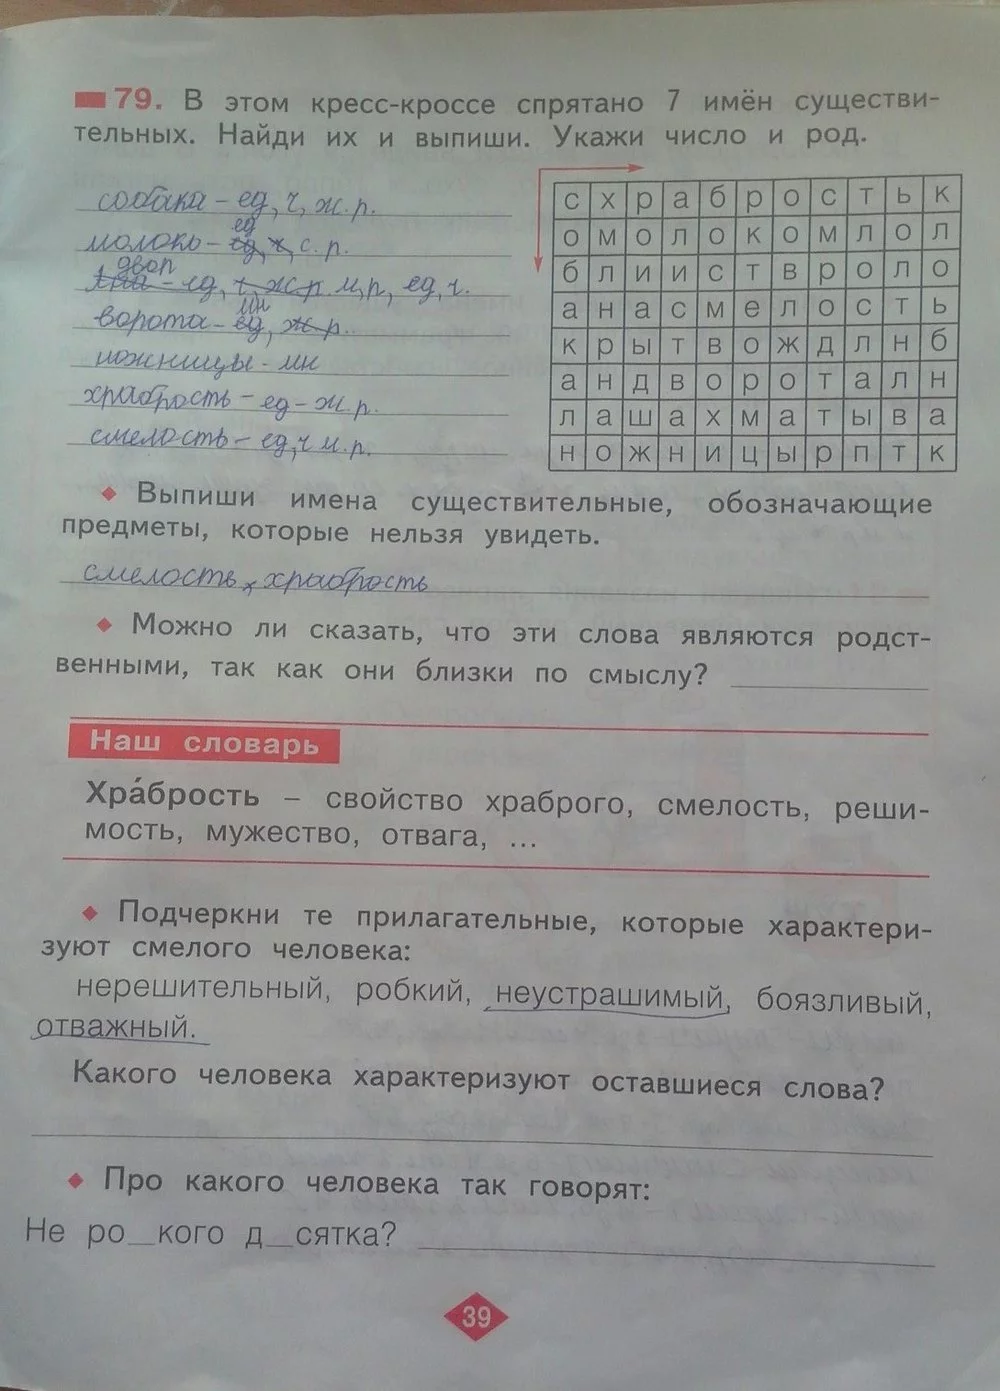 79. В этом кресс-кроссе спрятано 7 имён существи-
тельных. Найди их и выпиши. Укажи число и род.
собака - ед, ч, ж. р.
ед
молоко - ед, ч, с. р.
двор
ед, ч. ж.р. м,р, ед, ч.
мн
ворота - ед, ж. р.
ножницы - мн
храбрость - ед - ж. р.
смелость - ед, ч м. р.
с х р а б р о с т ь к
о м о л о к о м л о л
б л и и с т в р о л о
а н а с м е л о с т ь
к р ы т в о ж д л н б
а н д в о р о т а л н
л а ш а х м а т ы в а
н о ж н и ц ы р п т к
Выпиши имена существительные, обозначающие
предметы, которые нельзя увидеть.
смелость, храбрость
Можно ли сказать, что эти слова являются родст-
венными, так как они близки по смыслу?
Наш словарь
Хра́брость – свойство храброго, смелость, реши-
мость, мужество, отвага, ...
Подчеркни те прилагательные, которые характери-
зуют смелого человека:
нерешительный, робкий, неустрашимый, боязливый,
отважный.
Какого человека характеризуют оставшиеся слова?
Про какого человека так говорят:
Не ро_кого д_сятка?
39